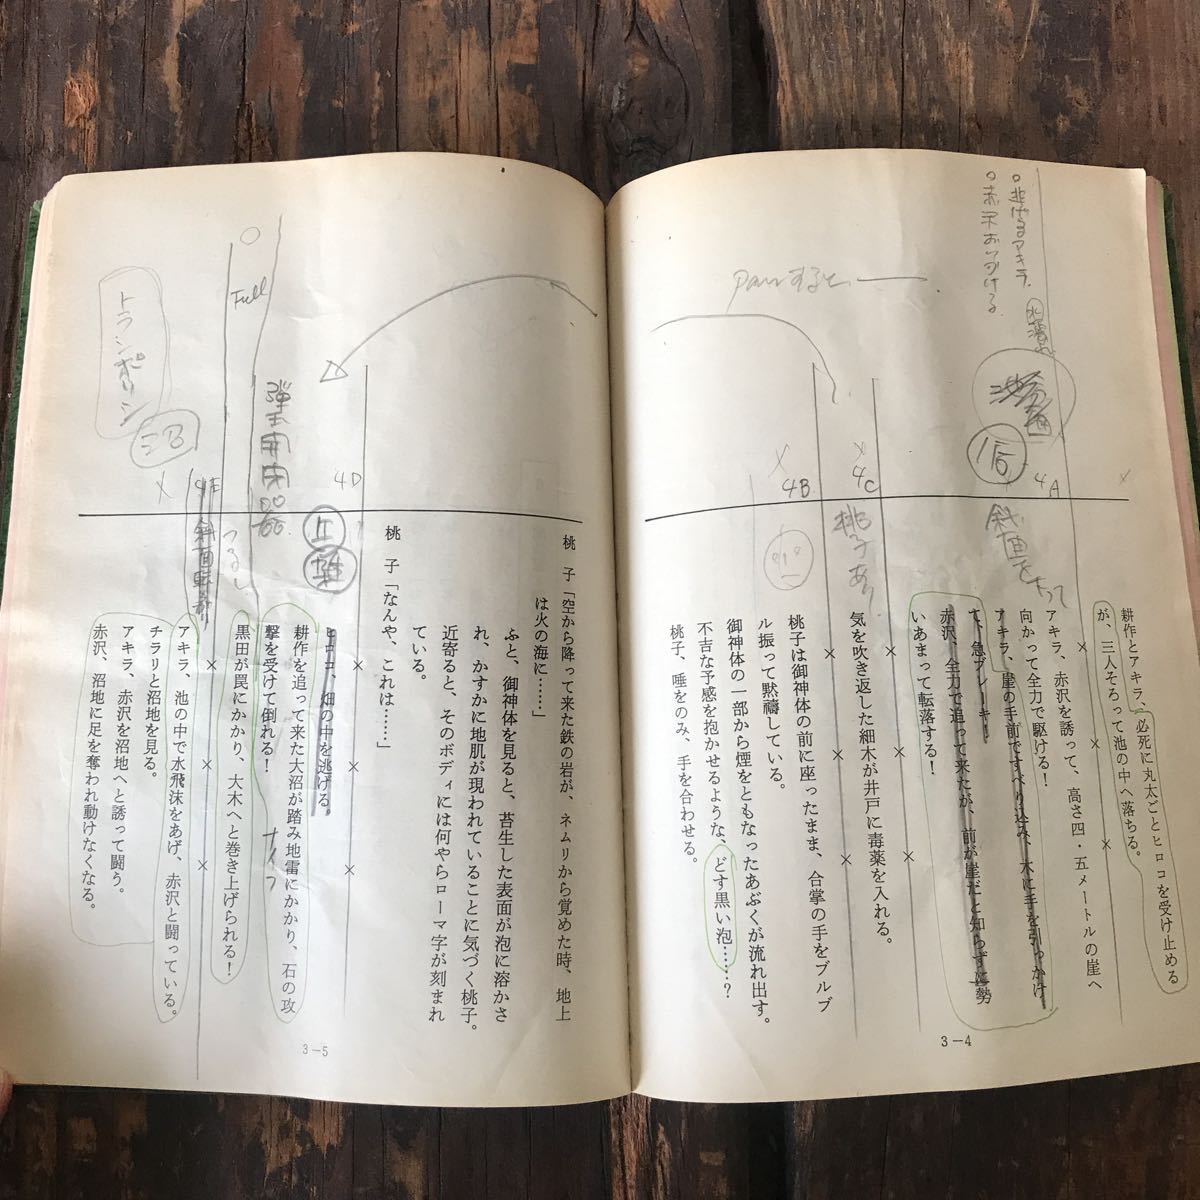 ○逃げるアキラ.
○赤沢おいかける
Panすると、
4A
4C
4B
斜面を
桃子あり
耕作とアキラ、必死に丸太ごとヒロコを受け止める
が、三人そろって池の中へ落ちる。
×　×　×
アキラ、赤沢を誘って、高さ四・五メートルの崖へ
向かって全力で駆ける！
アキラ、崖の手前ですべり込み、木に手を引っかけ
て、急ブレーキ！
赤沢、全力で追って来たが、前が崖だと知らずに勢
いあまって転落する！
×　×　×
気を吹き返した細木が井戸に毒薬を入れる。
×　×　×
桃子は御神体の前に座ったまま、合掌の手をブルブ
ル振って黙禱している。
御神体の一部から煙をともなったあぶくが流れ出す。
不吉な予感を抱かせるような、どす黒い泡……？
桃子、唾をのみ、手を合わせる。
3－4
桃　子「空から降って来た鉄の岩が、ネムリから覚めた時、地上
は火の海に……」
ふと、御神体を見ると、苔生した表面が泡に溶かさ
れ、かすかに地肌が現われていることに気づく桃子。
近寄ると、そのボディには何やらローマ字が刻まれ
ている。
桃　子「なんや、これは……」
×　×　×
4D
ヒロコ、畑の中を逃げる。
耕作を追って来た大沼が踏み地雷にかかり、石の攻
撃を受けて倒れる！
黒田が罠にかかり、大木へと巻き上げられる！
×　×　×
弾玉用
Full
つるし
ナイフ
4E
斜面転
トランポリン
アキラ、池の中で水飛沫をあげ、赤沢と闘っている。
チラリと沼地を見る。
アキラ、赤沢を沼地へと誘って闘う。
赤沢、沼地に足を奪われ動けなくなる。
3－5